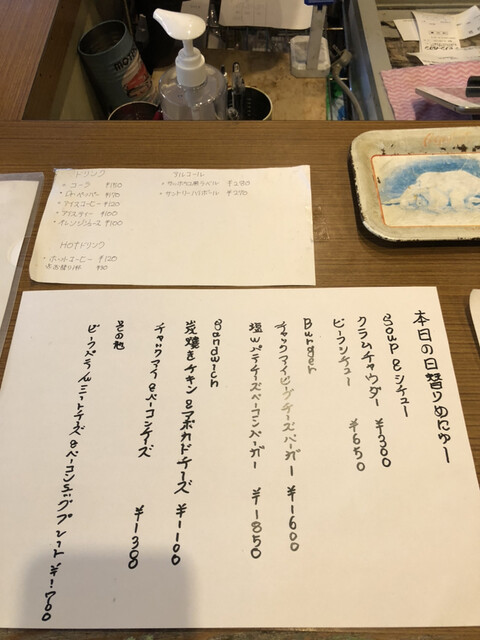 ドリンク
・コーラ ¥150
・Dr.ペッパー ¥170
・アイスコーヒー ¥120
・アイスティー ¥100
・オレンジジュース ¥100
HOTドリンク
・ホットコーヒー ¥120
アルコール
・サッポロ黒ラベル ¥280
・サントリーハイボール ¥270
本日の日替りめにゅー
Soup & シチュー
クラムチャウダー ¥300
ビーフシチュー ¥650
Burger
チャックアイビーフチーズバーガー ¥1600
塩Wパテチーズベーコンバーガー ¥1850
Sandwich
炭焼きチキン&アボカドチーズ ¥1100
チャックアイ&ベーコンチーズ ¥1300
その他
チーズ&ベーコンエッグプレート ¥1700